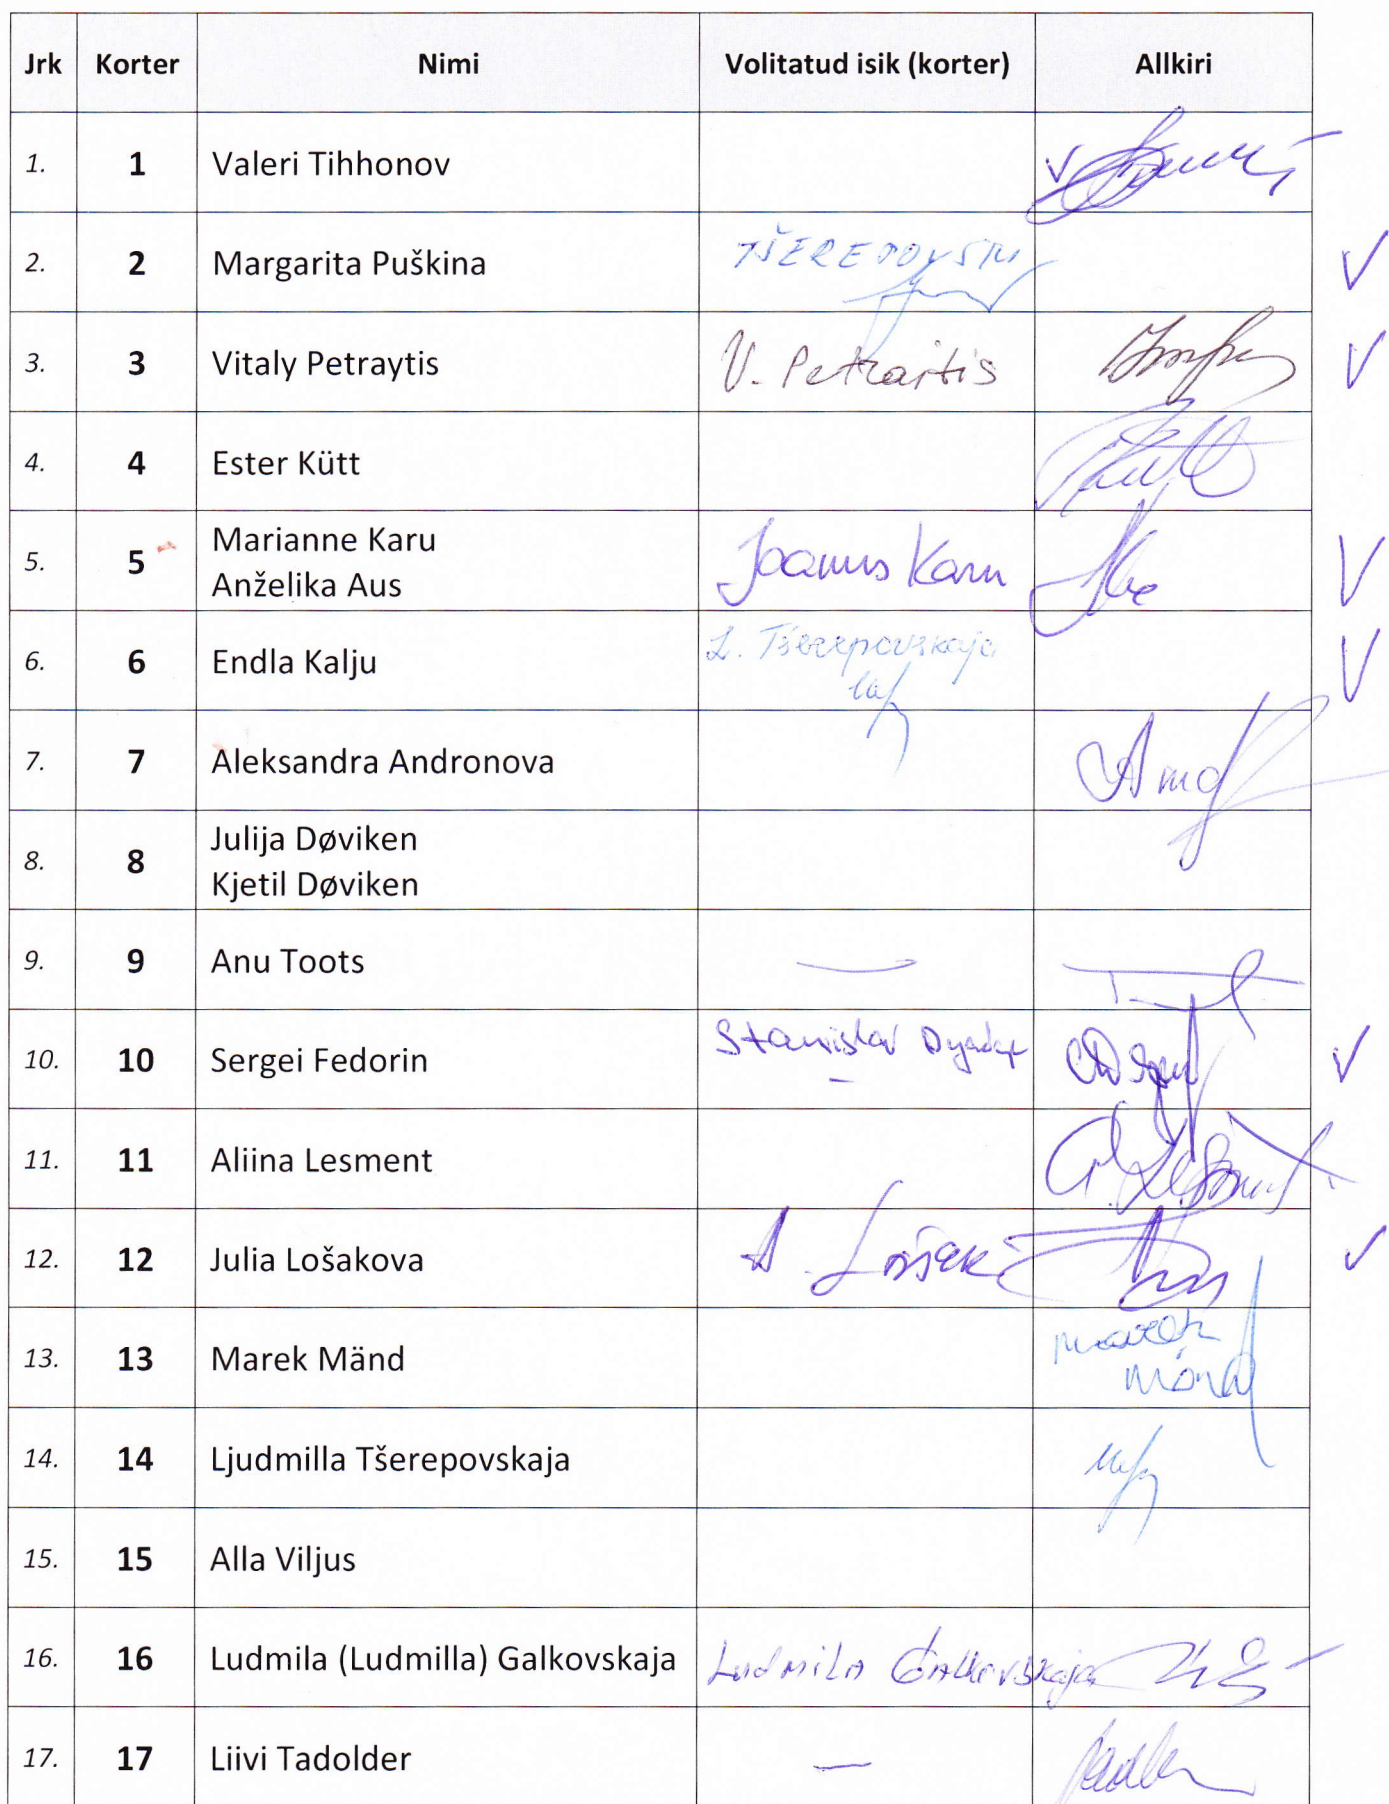 Jrk Korter Nimi Volitatud isik (korter) Allkiri
1. 1 Valeri Tihhonov
2. 2 Margarita Puškina
3. 3 Vitaly Petraytis V. Petraitis
4. 4 Ester Kütt
5. 5 Marianne Karu Joanus Karu
Anželika Aus
6. 6 Endla Kalju L. Tšerepovskaja
7. 7 Aleksandra Andronova
8. 8 Julija Døviken
Kjetil Døviken
9. 9 Anu Toots —
10. 10 Sergei Fedorin Stanislav
11. 11 Aliina Lesment
12. 12 Julia Lošakova A.
13. 13 Marek Mänd Marek
Mänd
14. 14 Ljudmilla Tšerepovskaja
15. 15 Alla Viljus
16. 16 Ludmila (Ludmilla) Galkovskaja Ludmila Galkovskaja
17. 17 Liivi Tadolder —